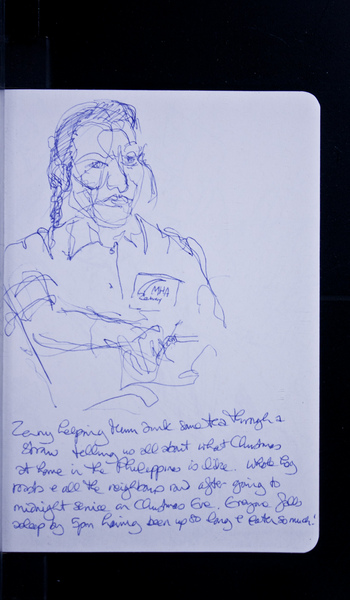 MHA
Zenny helping Mum drink some tea through a
straw telling us all about what Christmas
at home in the Philippines is like. Whole hog
roasts & all the neighbours and after going to
midnight service on Christmas Eve. Everyone falls
asleep by 5pm having been up so long & eaten so much!